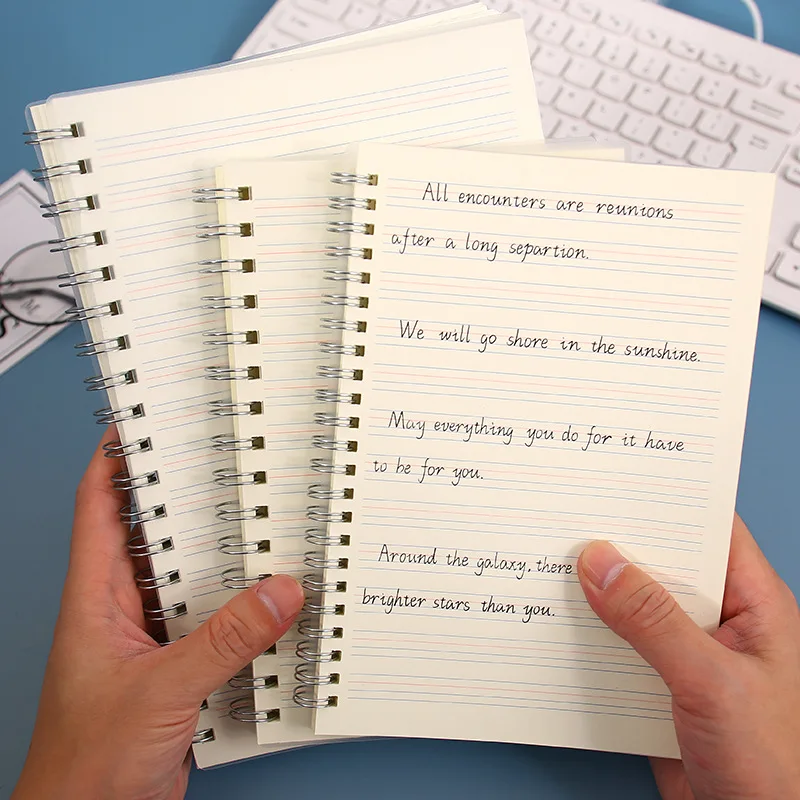 All encounters are reunions
after a long separtion.
We will go shore in the sunshine.
May everything you do for it have
to be for you.
Around the galaxy, there
brighter stars than you.